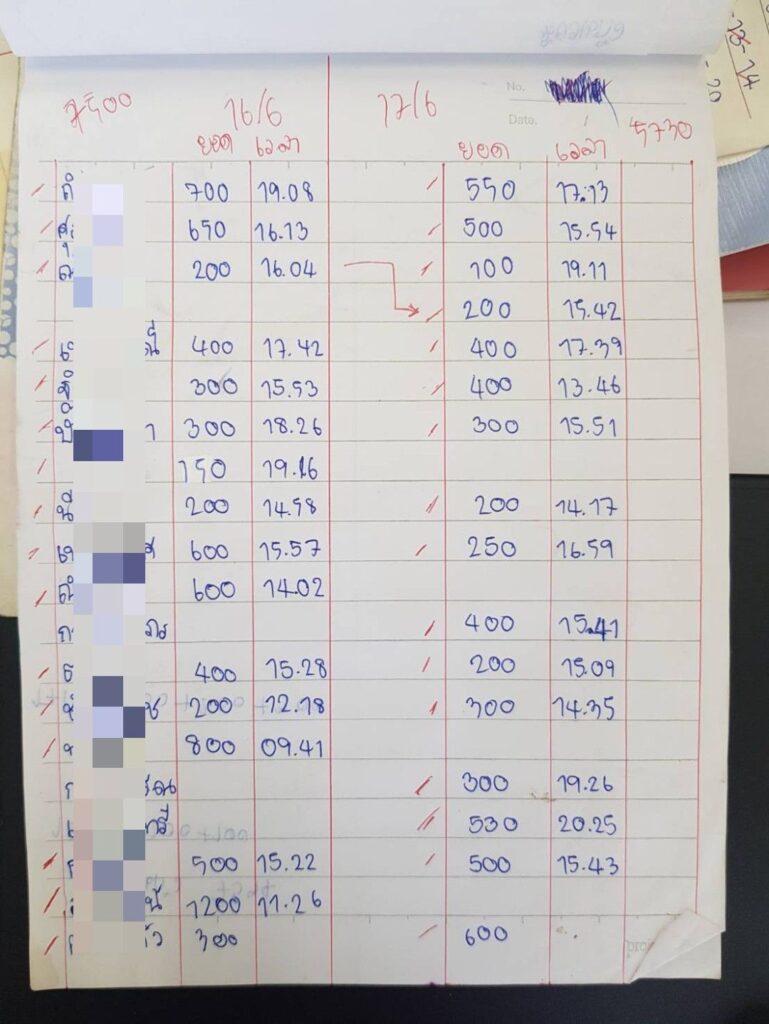 7500 16/6 17/6 No.
Date. / 5730
ยอด เวลา ยอด เวลา
700 19.08 550 17.13
650 16.13 500 15.54
200 16.04 100 19.11
200 15.42
400 17.42 400 17.39
300 15.53 400 13.46
300 18.26 300 15.51
150 19.16
200 14.58 200 14.17
600 15.57 250 16.59
600 14.02
400 15.41
400 15.28 200 15.09
200 12.18 300 14.35
800 09.41
300 19.26
530 20.25
500 15.22 500 15.43
1200 11.26
300 600